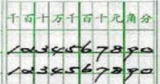 千百十万千百十元角分
1234567890
1234567890